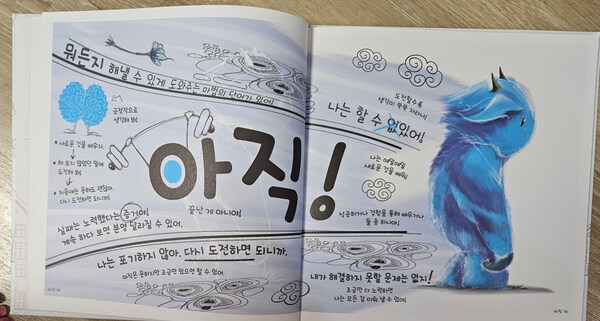 뭐든지 해낼 수 있게 도와주는 마법의 단어가 있어!
긍정적으로
생각해 봐!
새로운 것을 배우자.
해 보지 않았던 일에
도전해 봐!
처음에는 못해도 괜찮아.
다시 도전하면 되니까!
아직!
끝난 게 아니야!
실패는 노력했다는 증거야!
계속 하다 보면 분명 달라질 수 있어.
나는 포기하지 않아. 다시 도전하면 되니까.
아직은 못하지만 조금만 있으면 할 수 있어.
도전할수록
생각이 쑥쑥 자라나!
나는 할 수 없있어!
나는 매일매일
새로운 것을 배워!
성공하거나 경험을 통해 배우거나
둘 중 하나야!
내가 해결하지 못할 문제는 없지!
조금만 더 노력하면
나는 모든 걸 이뤄 낼 수 있어!